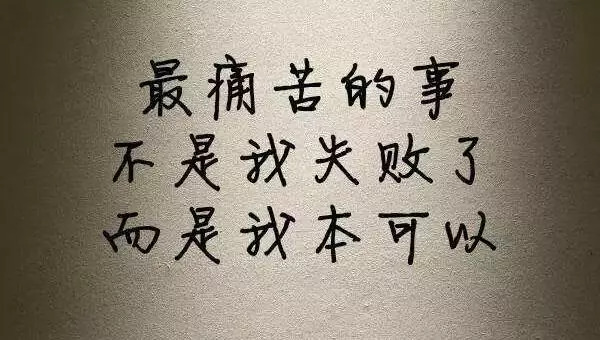 最痛苦的事
不是我失败了
而是我本可以